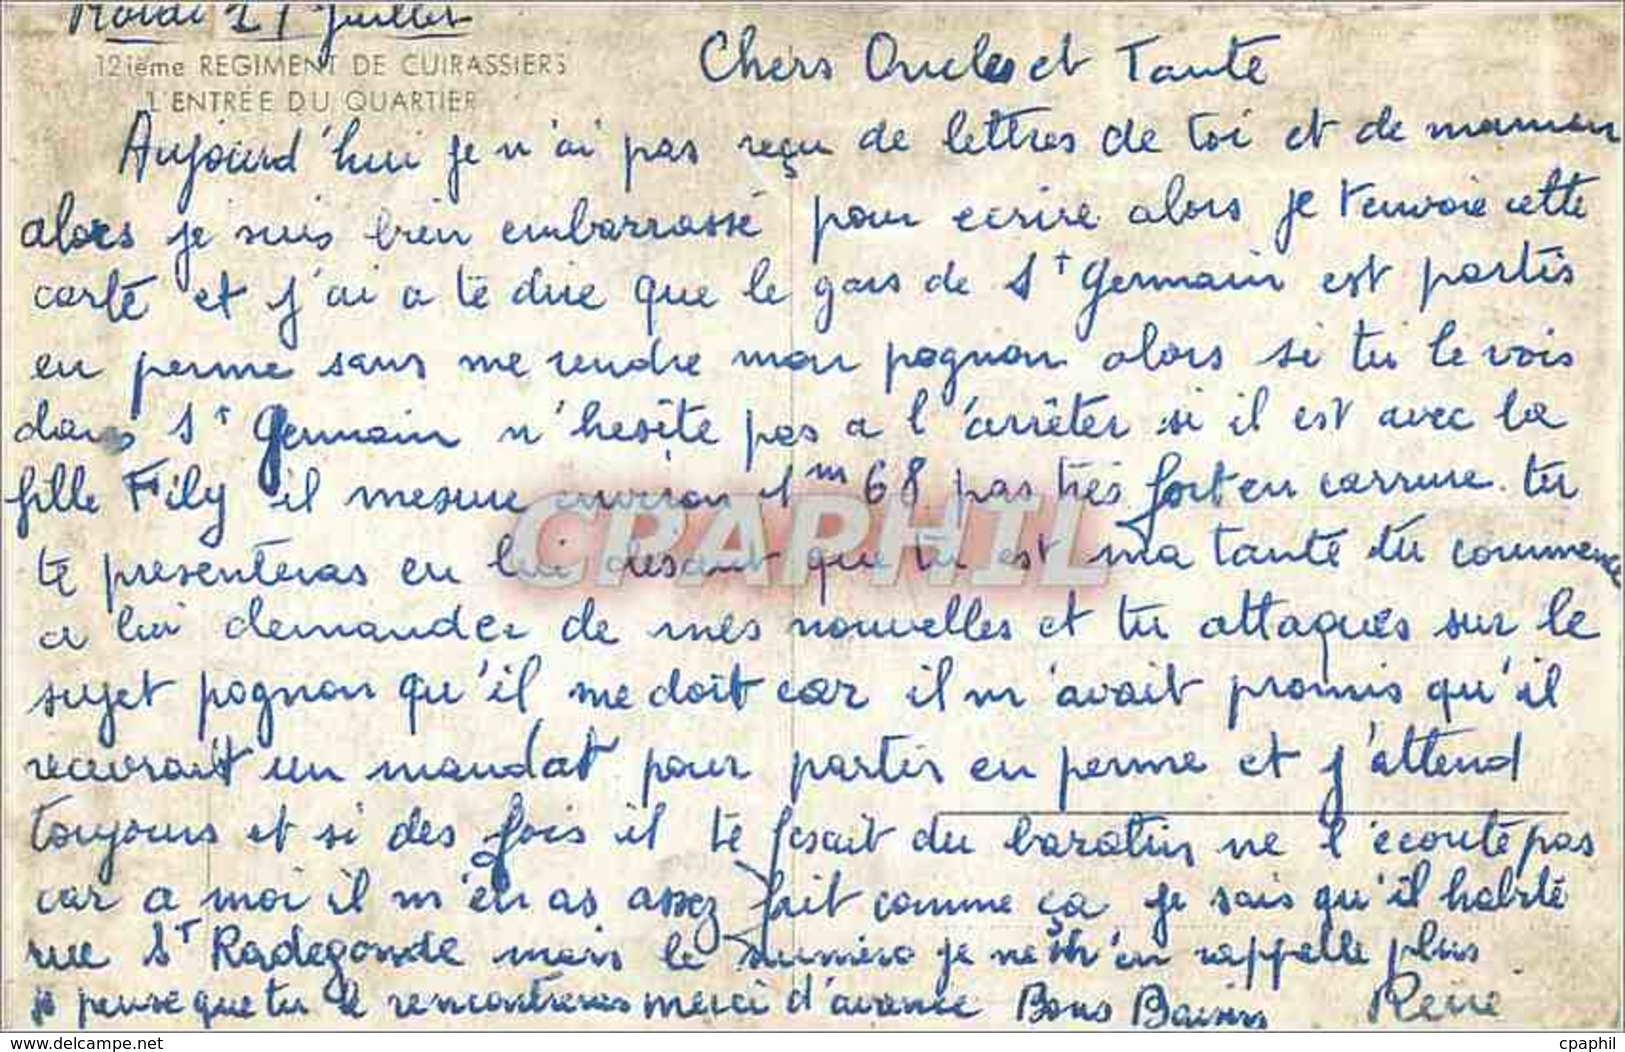 Mardi 27 Juillet
12ième REGIMENT DE CUIRASSIERS
L'ENTRÉE DU QUARTIER
Chers Oncles et Tante
Aujourd'hui je n'ai pas reçu de lettres de toi et de maman
alors je suis bien embarrassé pour ecrire alors je t'envoie cette
carte et j'ai a te dire que le gars de St Germain est partis
en perme sans me rendre mon pognon alors si tu le vois
dans St Germain n'hesite pas a l'arrêter si il est avec la
fille Fily il mesure environ 1m68 pas très fort en carrure. tu
te presenteras en lui disant que tu est ma tante tu commence
a lui demander de mes nouvelles et tu attaques sur le
sujet pognon qu'il me doit car il m'avait promis qu'il
recevrait un mandat pour partir en perme et j'attend
toujours et si des fois il te fesait du baratin ne l'écoute pas
car a moi il m'en as assez fait comme ça je sais qu'il habite
rue St Radegonde mais le numéro je ne m'en rappelle plus
je pense que tu le rencontreras merci d'avance Bons Baisers
CPAPHIL
delcampe.net
cpaphil